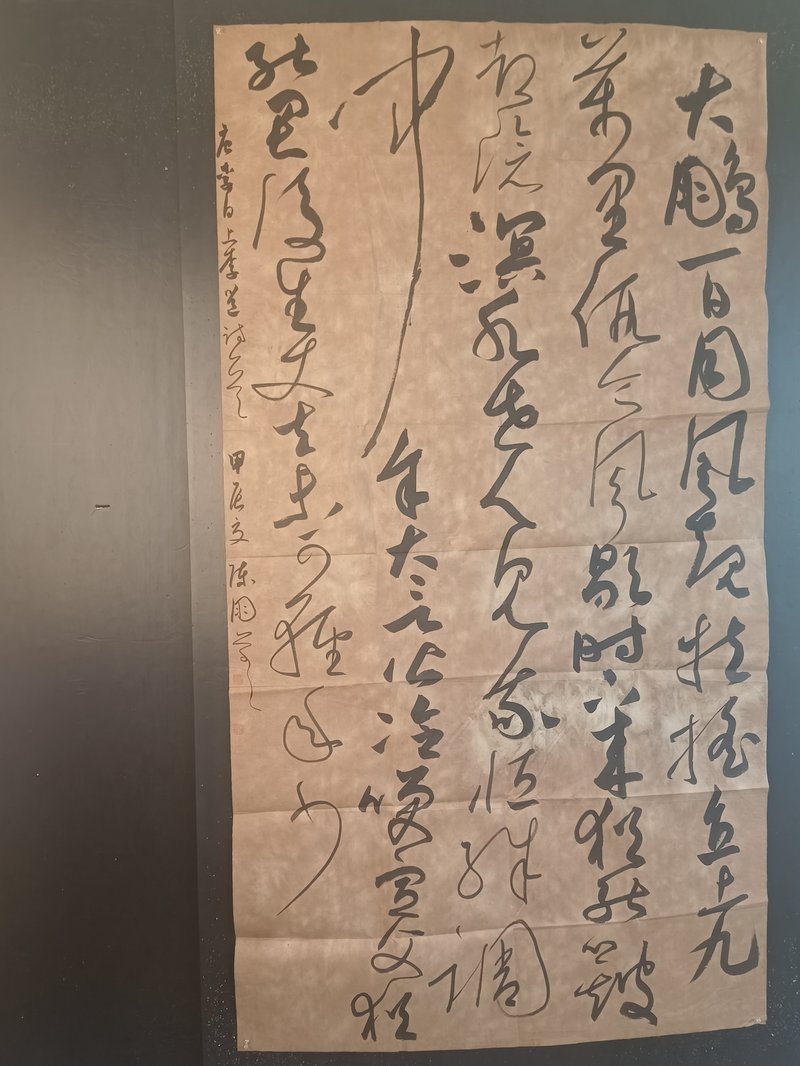 大鵬一日同风起扶摇直上九
万里假令风歇时下来犹能簸
却沧溟水世人见我恒殊调
闻余大言皆冷笑宣父犹
能畏后生丈夫未可轻年少
唐李白上李邕诗一首 甲辰夏 陈